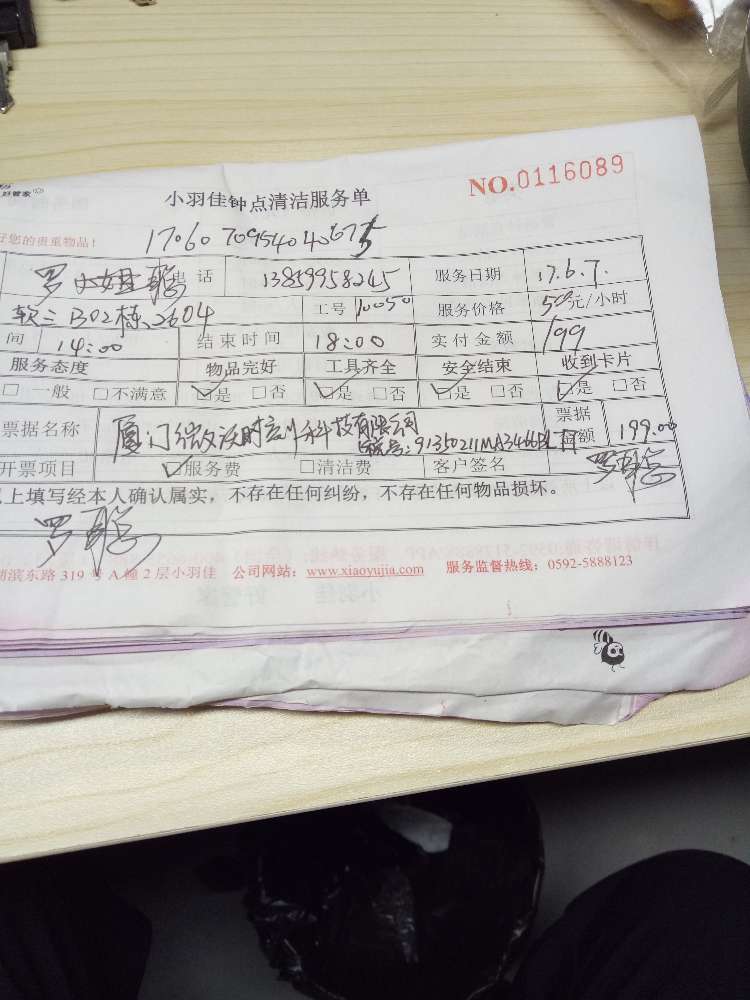 好管家
小羽佳钟点清洁服务单 NO.0116089
好您的贵重物品！
罗 聪 电话 13859958245 服务日期 17.6.7.
软三B02栋,2604 工号 10050 服务价格 元/小时
间 14:00 结束时间 18:00 实付金额 199
服务态度 物品完好 工具齐全 安全结束 收到卡片
□ 一般 □不满意 □是 □否 □是 □否 □是 □否 □是 □否
票据名称 厦门微沃时 科技有限公司 票据 金额 199.00
税号:91350211MA346
开票项目 □服务费 □清洁费 客户签名 罗聪
上填写经本人确认属实，不存在任何纠纷，不存在任何物品损坏。
罗聪
湖滨东路 319 号 A 幢 2 层小羽佳 公司网站：www.xiaoyujia.com 服务监督热线：0592-5888123